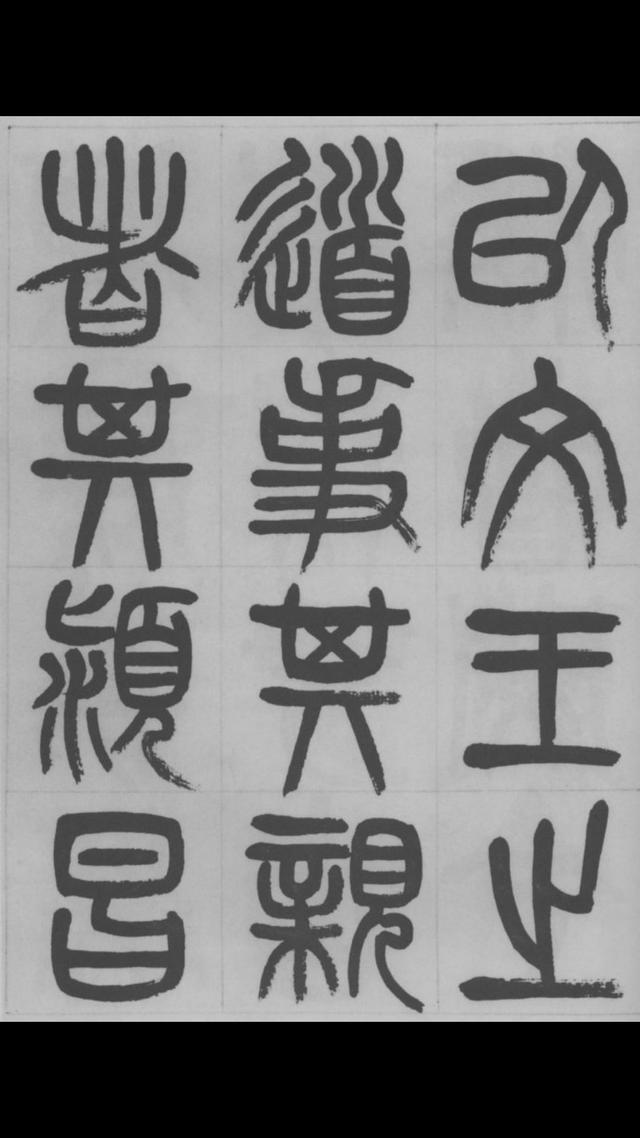 以文王之
道事其親
者其潁昌